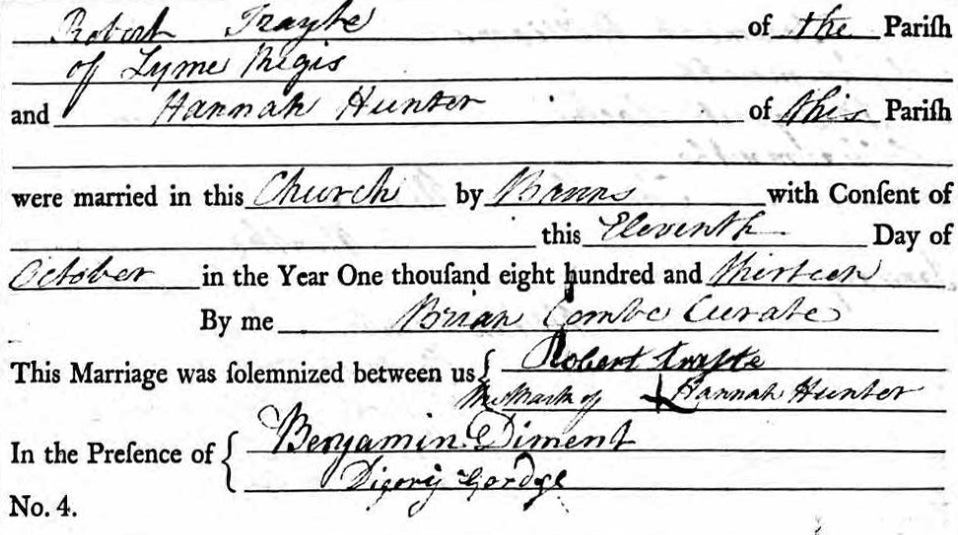 Robert Trayte of the Pariſh
of Lyme Regis
and Hannah Hunter of this Pariſh
were married in this Church by Banns with Conſent of
this Eleventh Day of
October in the Year One thouſand eight hundred and thirteen
By me Brian Combe Curate
This Marriage was ſolemnized between us { Robert
The Mark of Hannah Hunter
In the Preſence of { Benjamin Diment
Digory Gordge
No. 4.